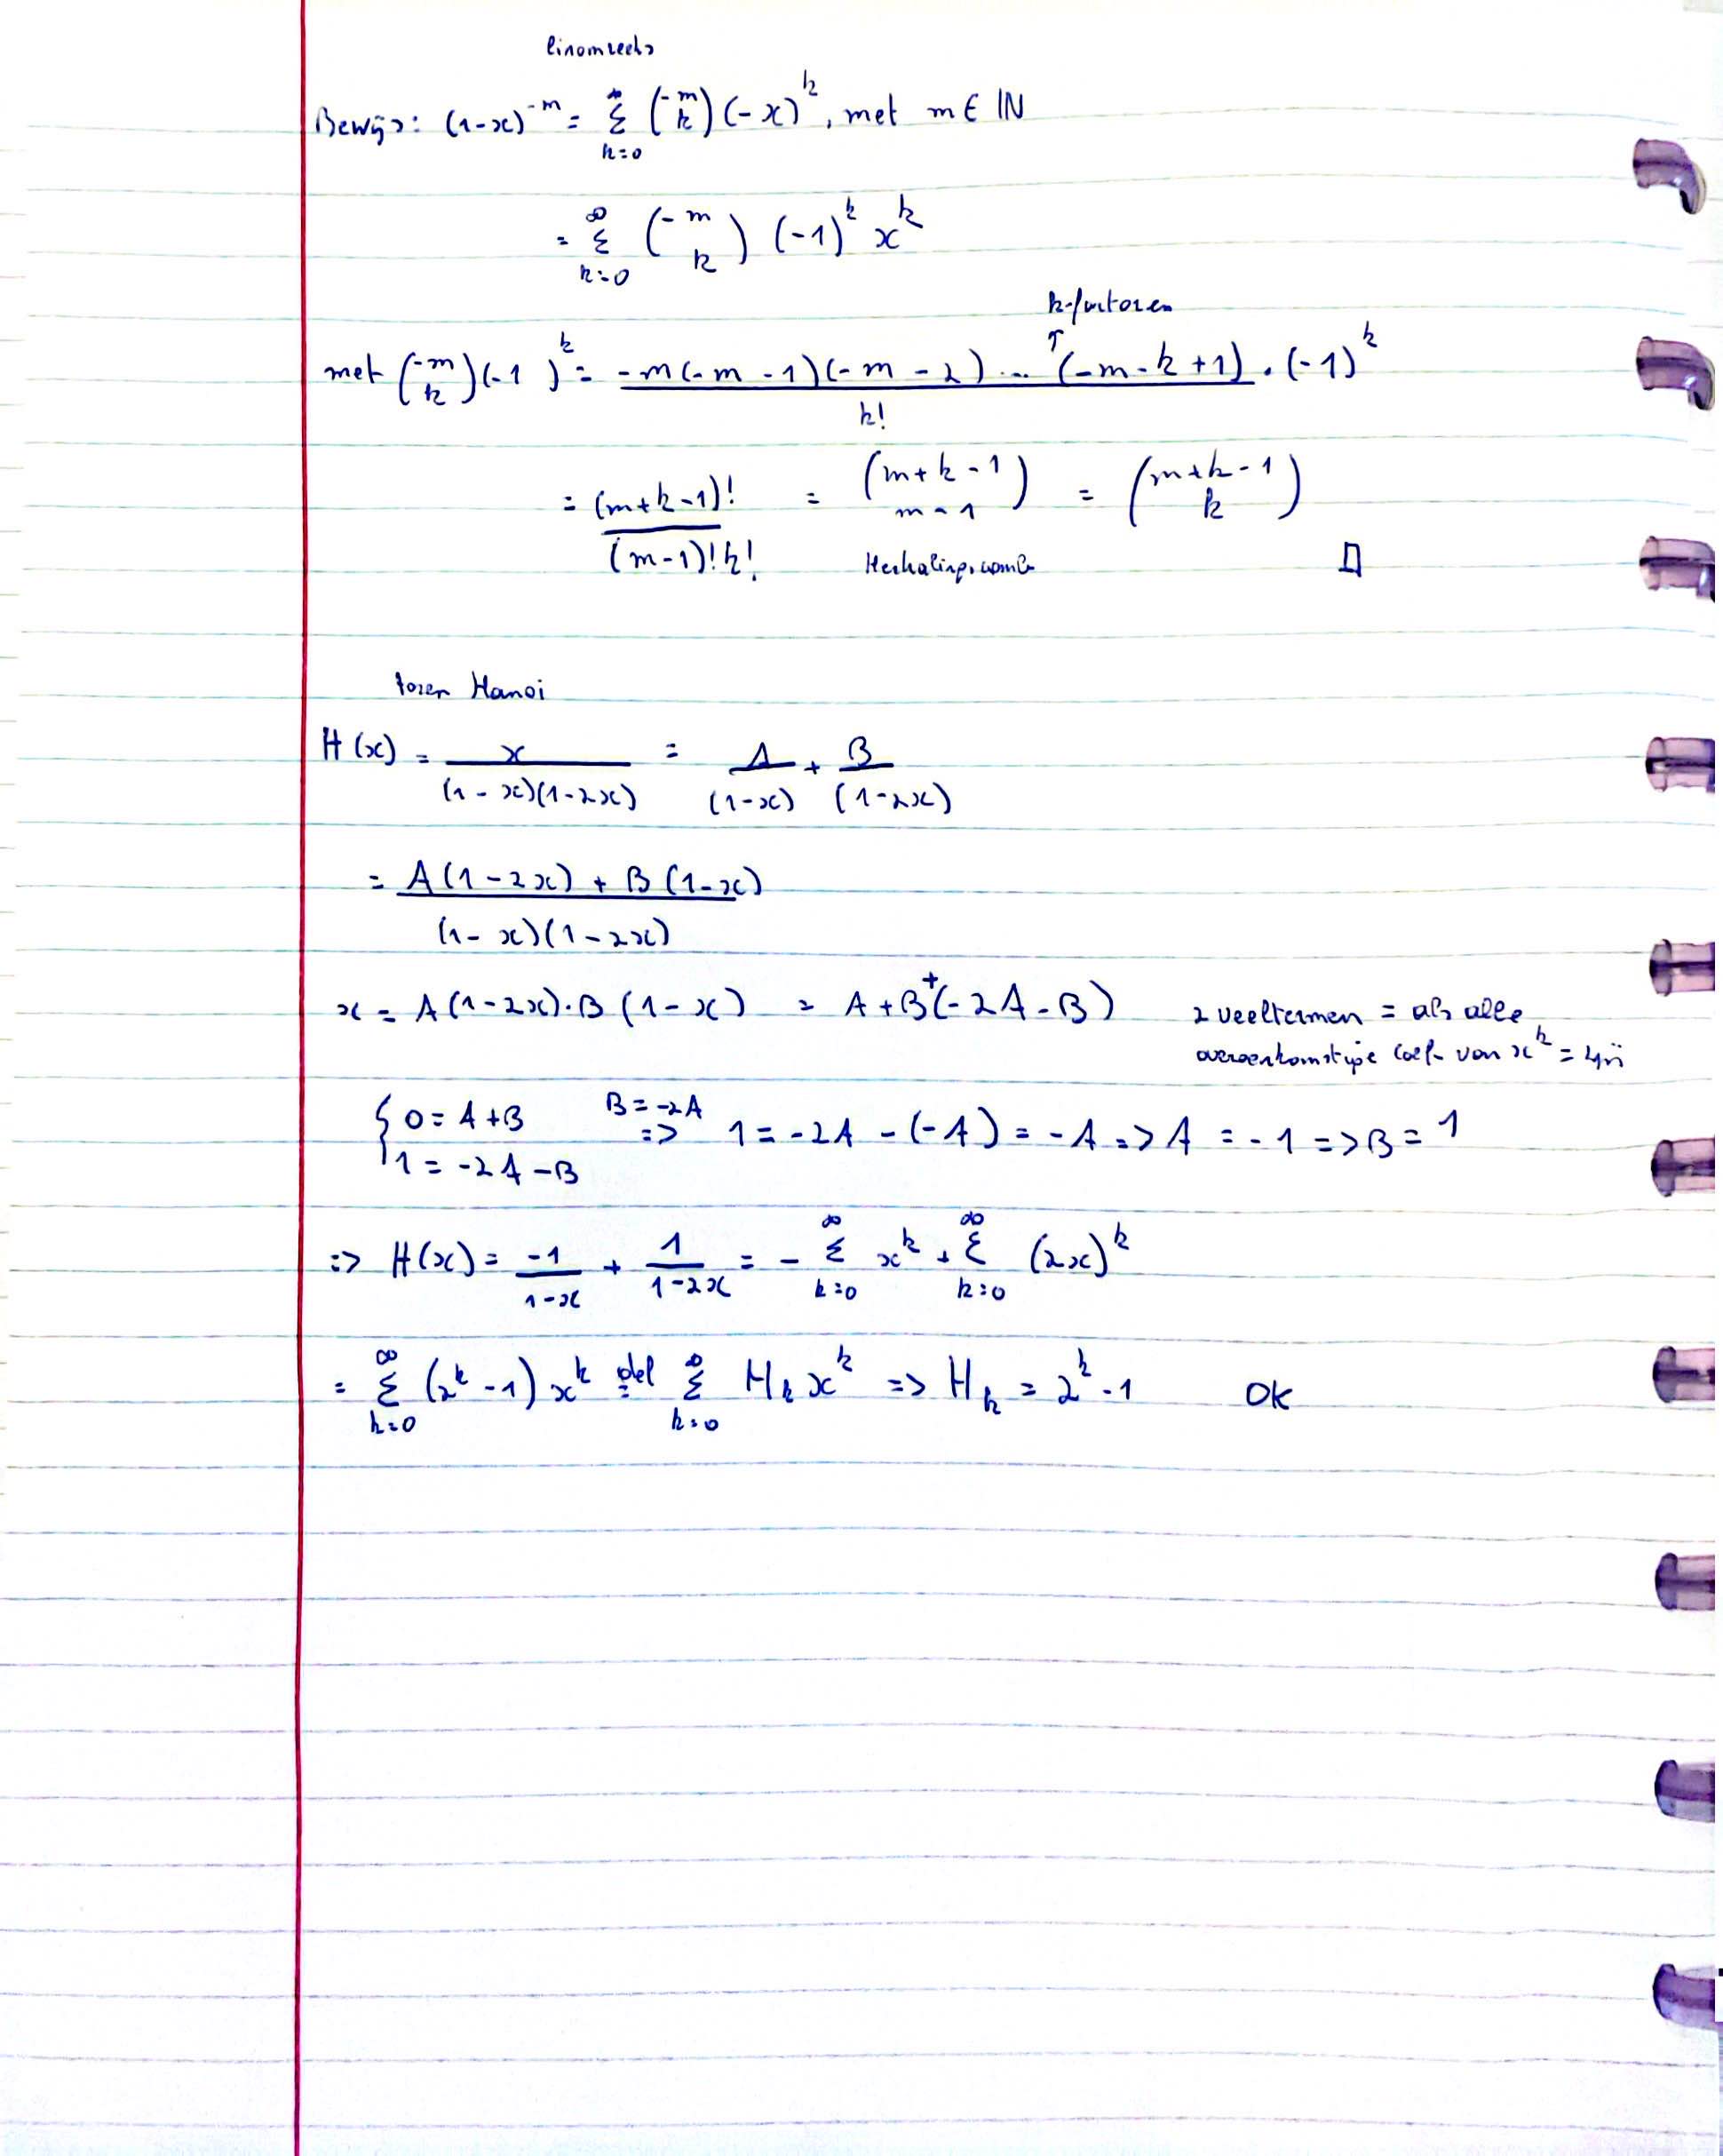 binomreeks
Bewijs: (1-x)^{-m} = \sum_{k=0}^{\infty} \binom{-m}{k} (-x)^k, met m ∈ ℕ
= \sum_{k=0}^{\infty} \binom{-m}{k} (-1)^k x^k
k-factoren
met \binom{-m}{k} (-1)^k = \frac{-m(-m-1)(-m-2)...(-m-k+1)}{k!} . (-1)^k
= \frac{(m+k-1)!}{(m-1)!k!} = \binom{m+k-1}{m-1} = \binom{m+k-1}{k}
Herhalingscomb □
toren Hanoi
H(x) = \frac{x}{(1-x)(1-2x)} = \frac{A}{(1-x)} + \frac{B}{(1-2x)}
= \frac{A(1-2x) + B(1-x)}{(1-x)(1-2x)}
x = A(1-2x).B(1-x) = A+B+(-2A-B) 2 veeltermen = als alle
overeenkomstige coef. van x^k = zijn
{ 0 = A+B B=-2A => 1 = -2A-(-A) = -A => A = -1 => B = 1
1 = -2A-B
=> H(x) = \frac{-1}{1-x} + \frac{1}{1-2x} = - \sum_{k=0}^{\infty} x^k + \sum_{k=0}^{\infty} (2x)^k
= \sum_{k=0}^{\infty} (2^k-1) x^k \overset{def}{=} \sum_{k=0}^{\infty} H_k x^k => H_k = 2^k-1 OK